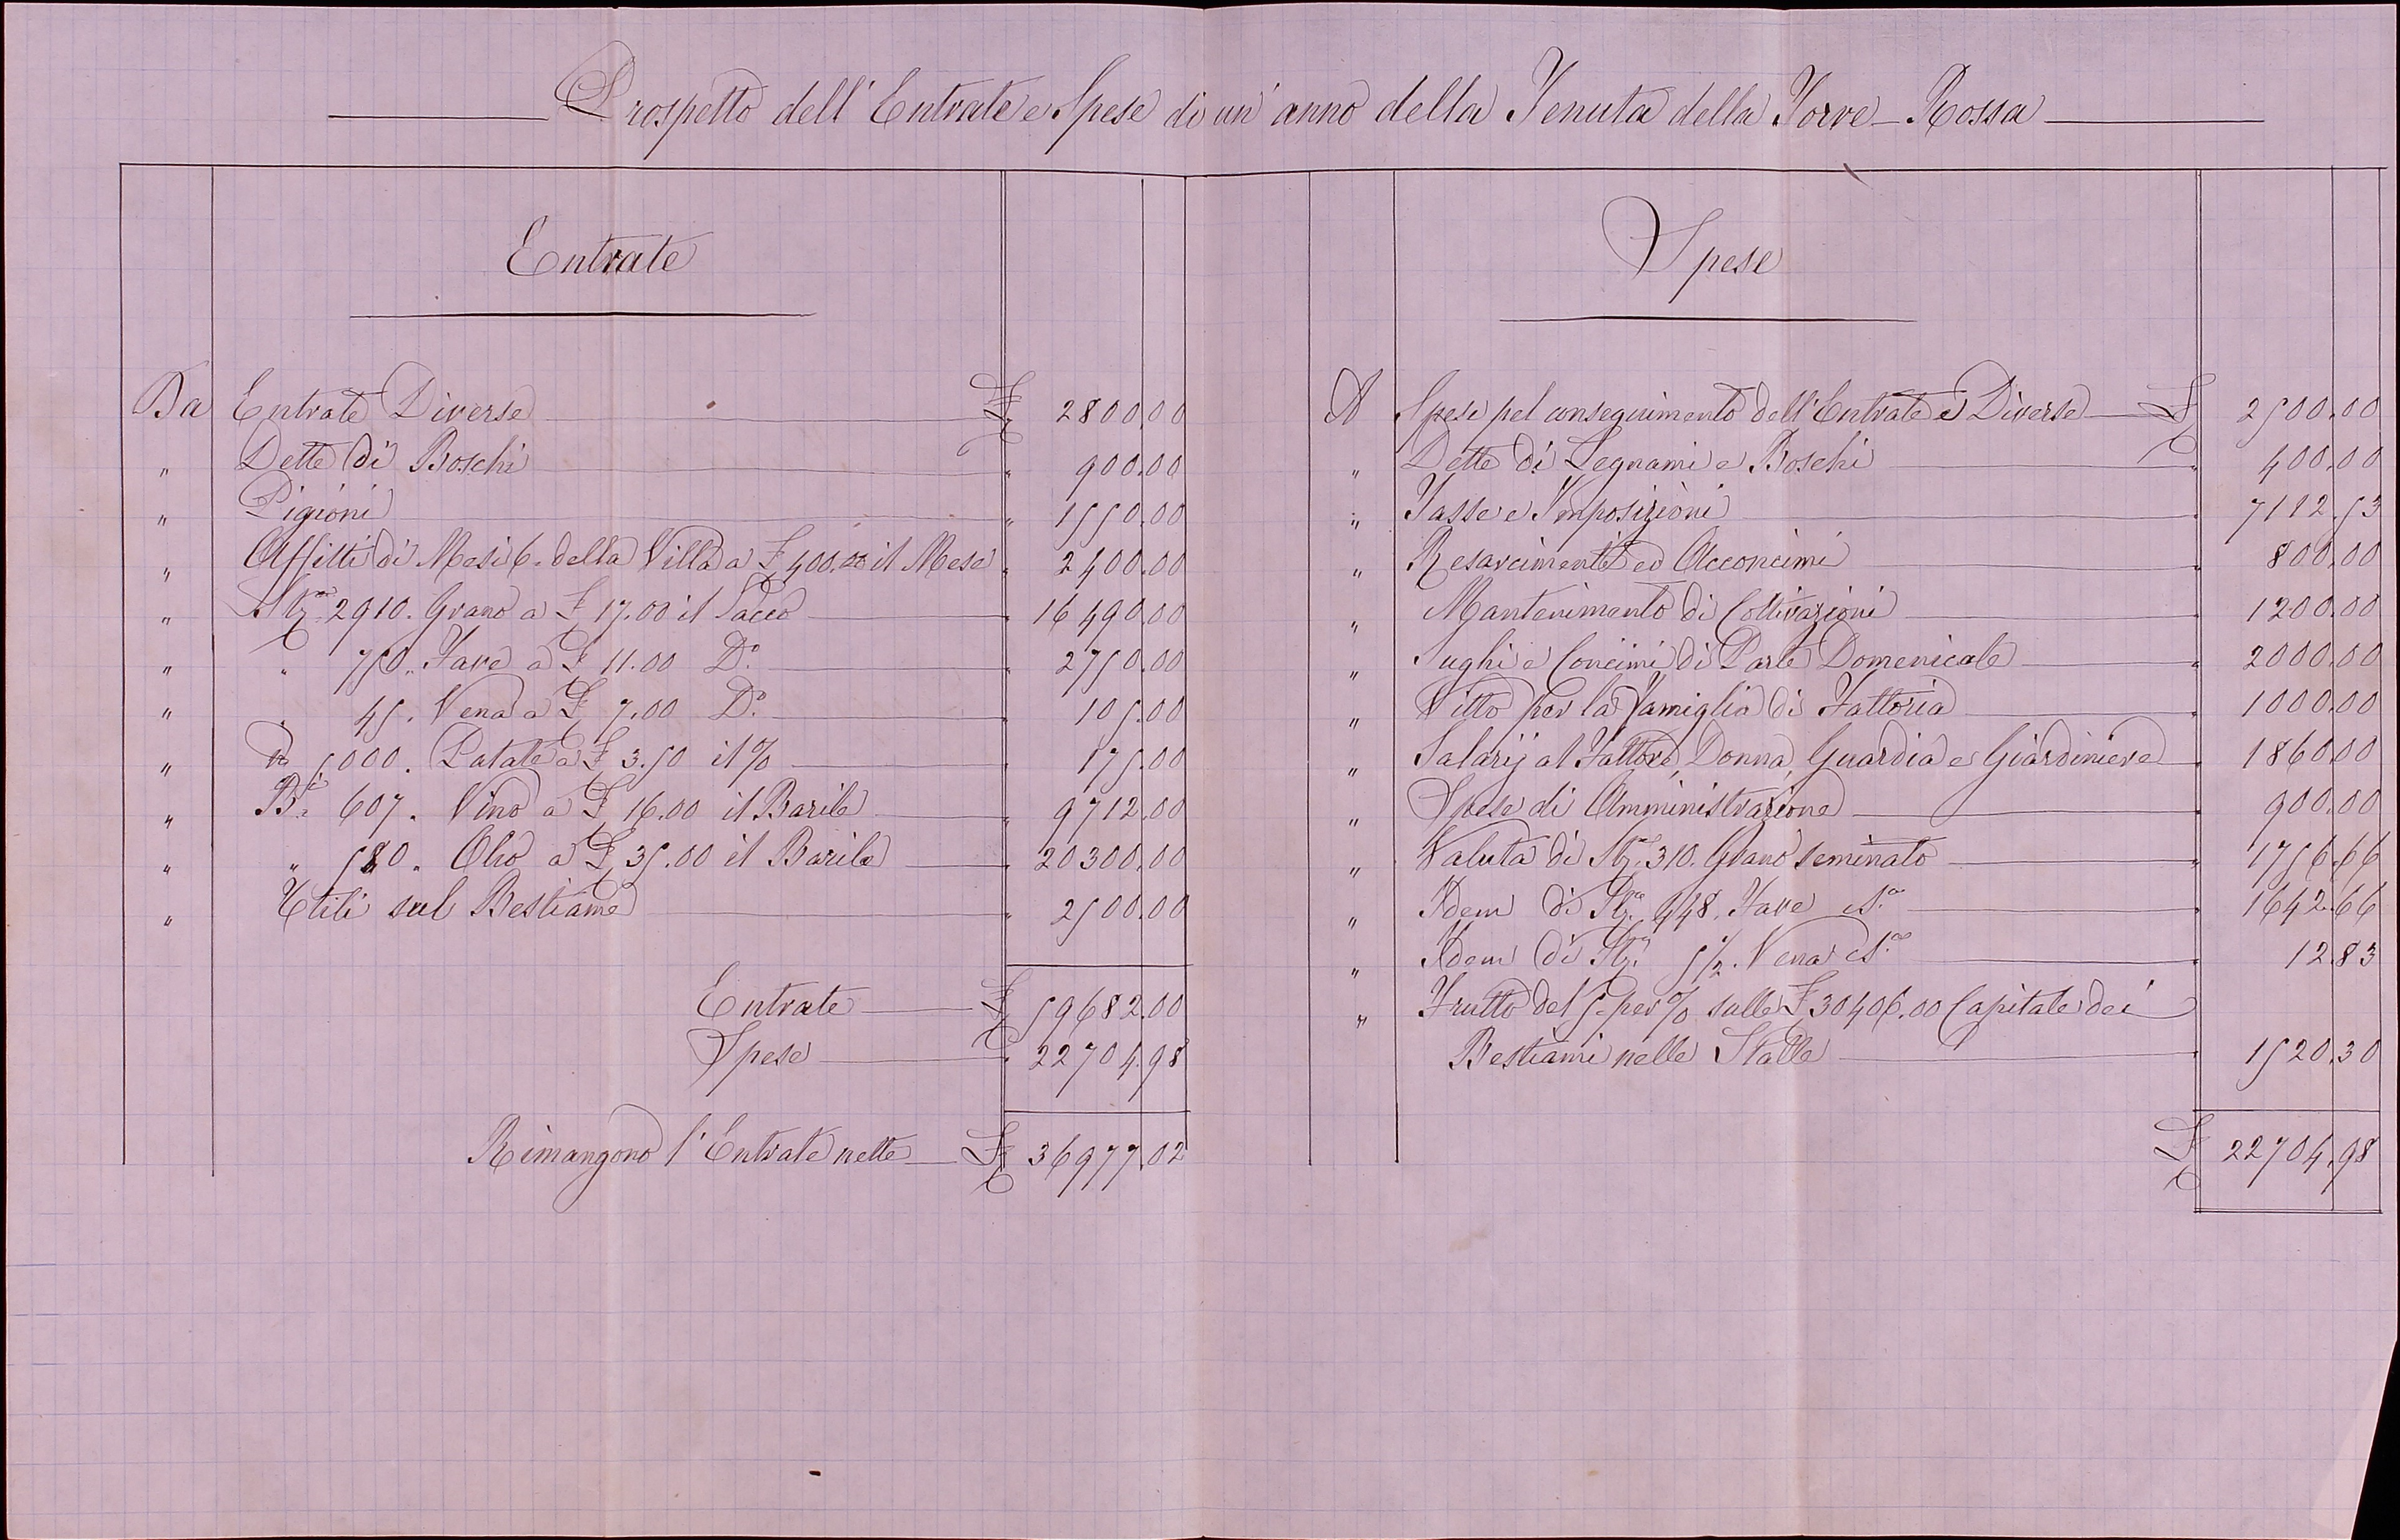 Prospetto dell'Entrate e Spese di un'anno della Tenuta della Torre-Rossa
Entrate
Da Entrate Diverse £ 2800.00
" Dette di Boschi " 900.00
" Pigioni " 1550.00
" Affitti di Mesi 6. della Villa a £ 400.00 il Mese " 2400.00
" Stq. 2910. Grano a £ 17.00 il Sacco " 16490.00
" " 750. Fave a £ 11.00 D.o " 2750.00
" " 45. Vena a £ 7.00 D.o " 105.00
" 5000. Patate a £ 3.50 il % " 175.00
" B.li 607. Vino a £ 16.00 il Barile " 9712.00
" " 580. Olio a £ 35.00 il Barile " 20300.00
" Utili sul Bestiame " 2500.00
Entrate £ 59682.00
Spese " 22704.98
Rimangono l'Entrate nette £ 36977.02
Spese
A Spese pel conseguimento dell'Entrate e Diverse £ 2500.00
" Dette di Legnami e Boschi " 400.00
" Tasse e Imposizioni " 7112.53
" Resarcimenti ed Acconcimi " 800.00
" Mantenimento di Coltivazioni " 1200.00
" Sughi e Concimi di Parte Domenicale " 2000.00
" Vitto per la Famiglia di Fattoria " 1000.00
" Salarij al Fattore, Donna, Guardia e Giardiniere " 1860.00
" Spese di Amministrazione " 900.00
" Valuta di Stq. 310. Grano seminato " 1756.66
" Idem di Stq. 448. Fave S.e " 1642.66
" Idem di Stq. 5½. Vena S.a " 12.83
" Frutto del 5. per % sulle £ 30406.00 Capitale dei
Bestiami nelle Stalle " 1520.30
£ 22704.98